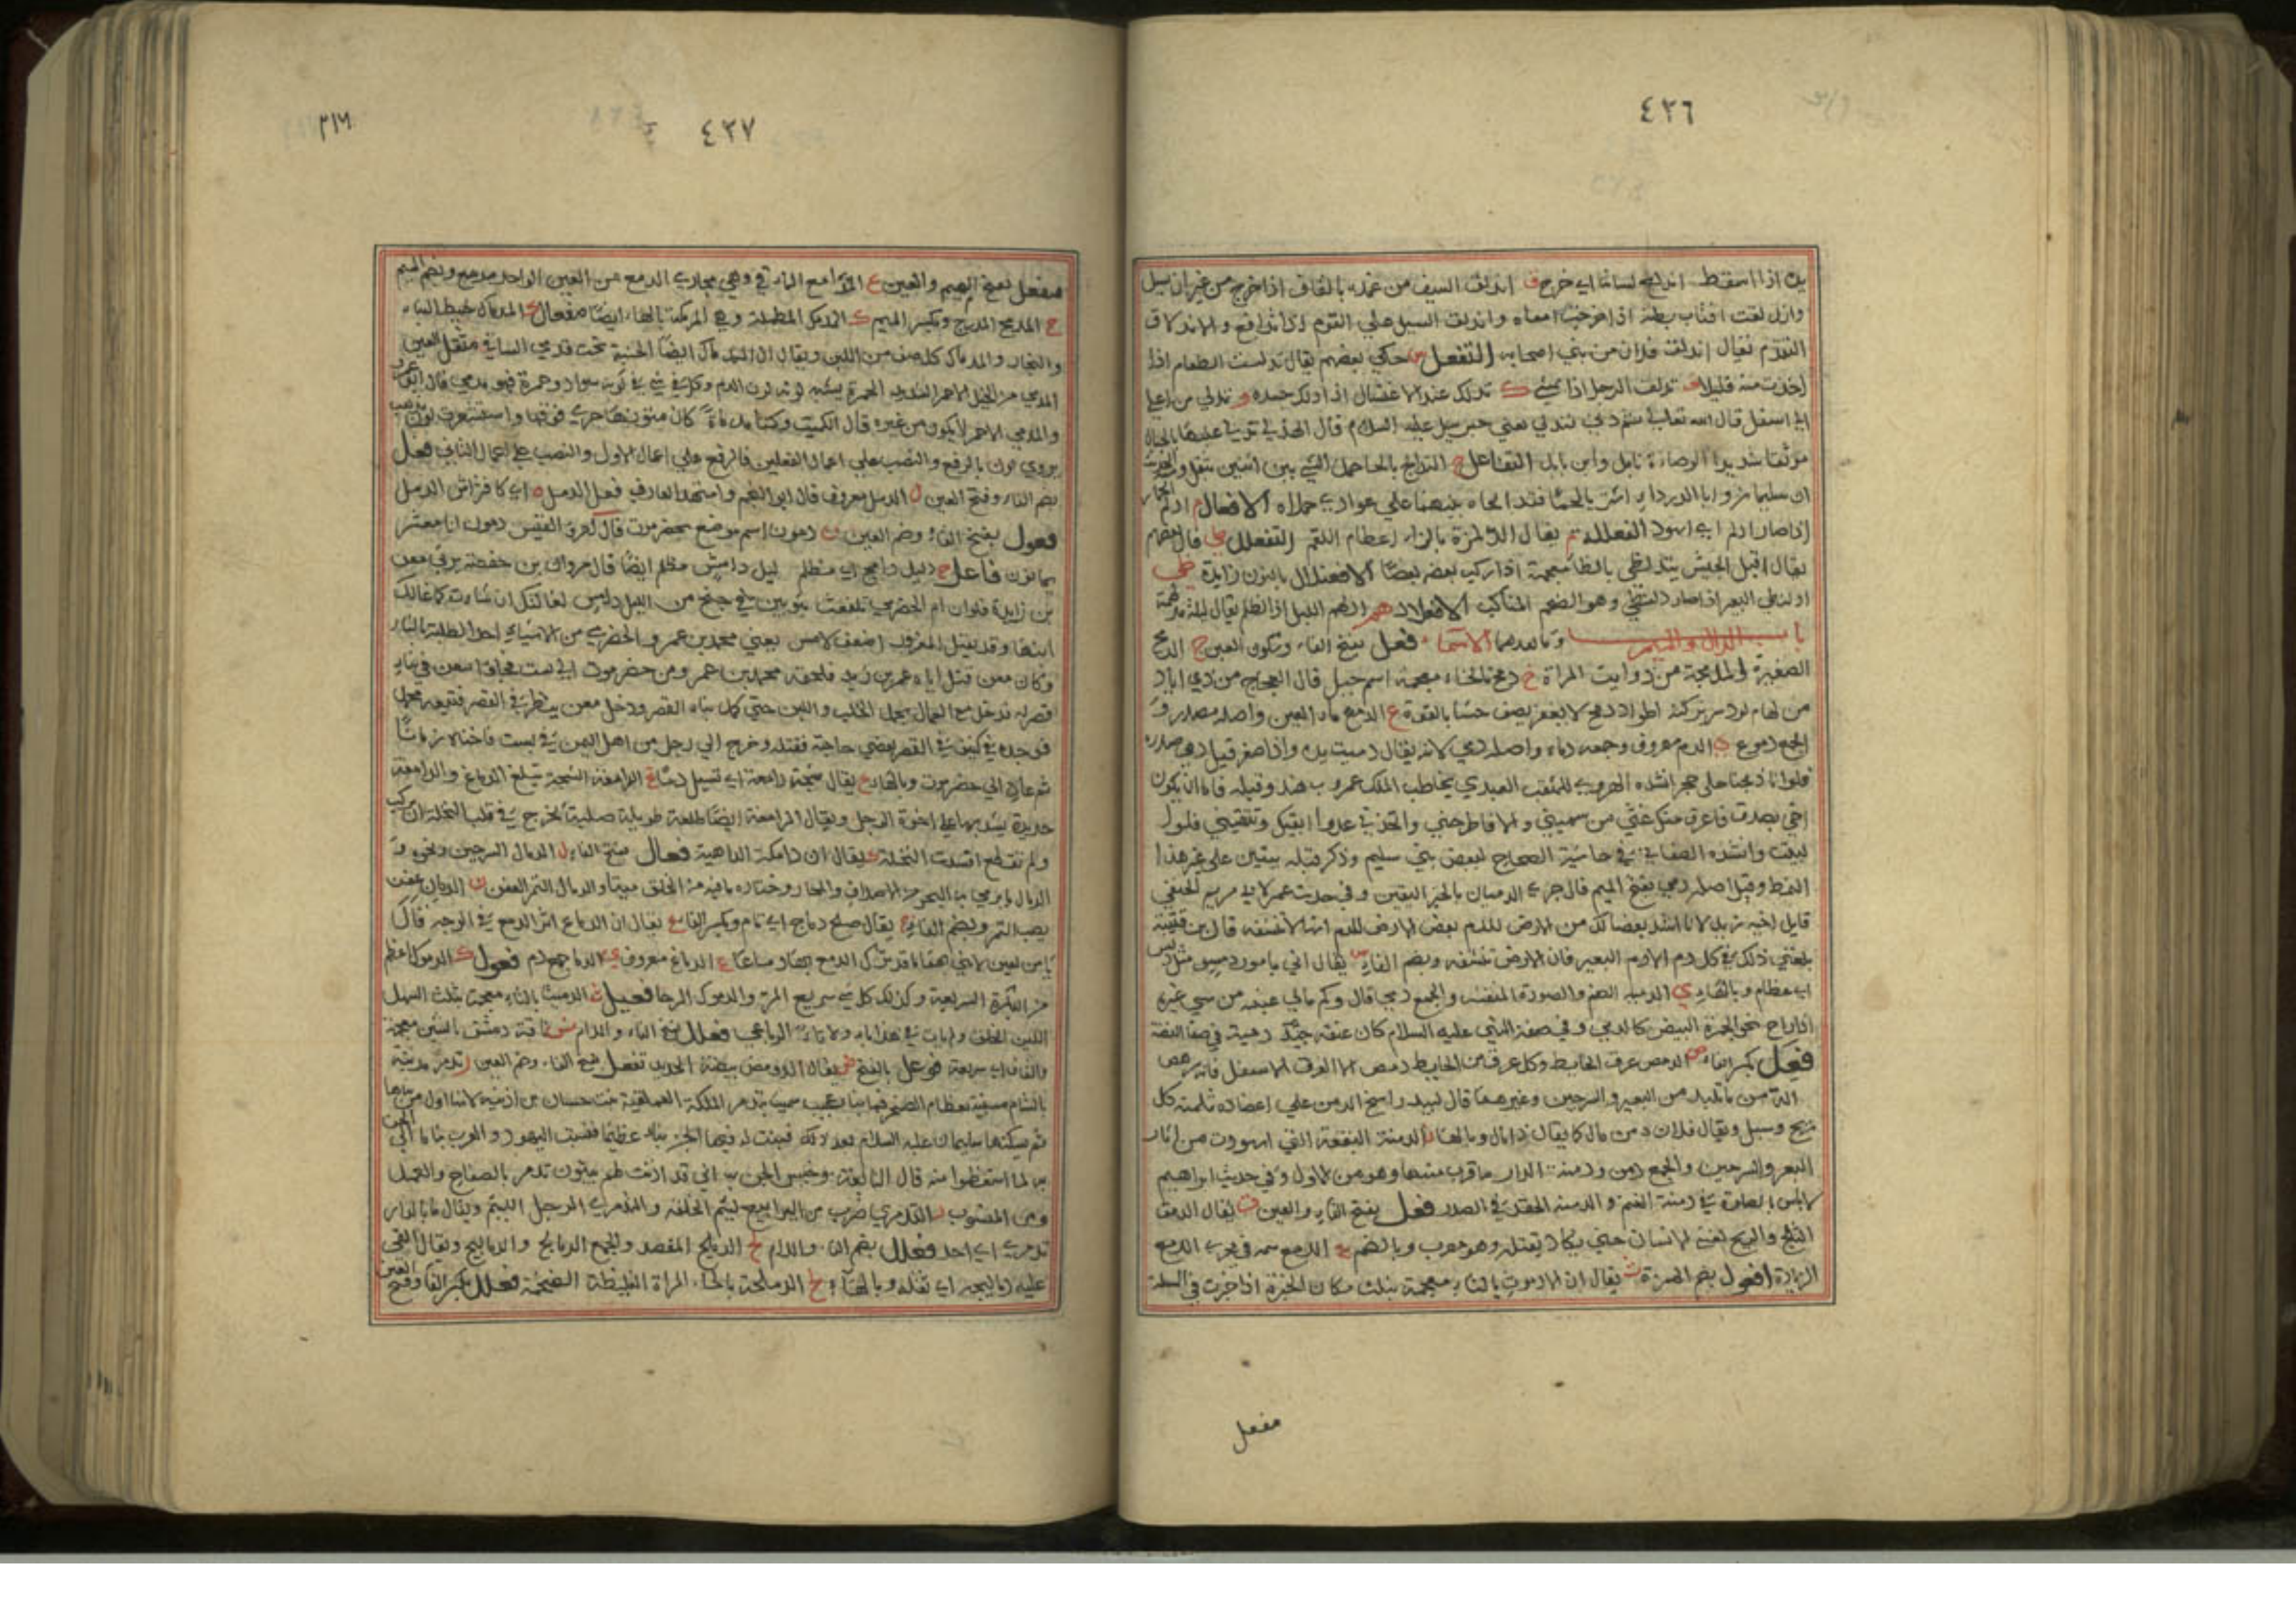 ٤٣٦
اذا اسقط اندلع لسانه اي خرج ف اندلق السيف من غمده بالقاف اذا خرج من غير ان يسل
واندلقت اقتاب بطنه اذا خرجت امعاه واندلق السيل علي القوم اذا اندافع والاندلاق
التقدم يقال اندلق فلان من بين اصحابه التفعل س حكي بعضهم يقال تدلست الطعام اذا
اخذت منه قليلا ف تدلف الرجل اذا مشي ك تدلك عند الاغتسال اذا دلك جسده و تدلي من اعلي
الي اسفل قال الله تعالي ثم دني فتدلي يعني جبريل عليه السلام قال الهذلي تدلي عليها بالحبال
موثقا شديد الوصاة نابل وابن نابل التفاعل ح التدالح بالحا حمل الشي بين اثنين
ان سليمان وابا الدرداء اشتريا لحما فتدالحاه بينهما علي عود اي حملاه الافعال م ادلم
اذا صار ادلم اي اسود الفعللة يقال الدلمزة بالزاء اعظام اللقم التفعلل ظ قال بعضهم
يقال اقبل الجيش يتدلظي بالظا معجمة اذا ركب بعضه بعضا الافعنلال بالنون زايدة
ادلنظي البعير اذا صار دلنظي وهو الضخم المناكب الافعلال هم ادلهم الليل اذا اظلم يقال ليلة مدلهمة
باب الدال والميم وما بعدهما الاسماء فعل بفتح الفاء وسكون العين ج الدمج
الضفيرة المدمجة من ذوايب المراة خ دمخ بالخاء معجمة اسم جبل قال العجاج من ذي اباد
ع الدمع ماء العين واصله مصدر و
الجمع دموع ي الدم معروف وجمعه دماء واصله دمي لانه يقال دميت يده واذا صغر قيل دمي
فلو انا ذبحنا علي حجر انشده الهروي للمثقب العبدي يخاطب الملك عمرو بن هند وقبله فاما ان تكون
اخي بصدق فاعرف منك غثي من سميني والا فاطرحني واتخذني عدوا اتقيك وتتقيني
البيت وانشده الصغاني في حاشية الصحاح لبعض بني سليم وذكر قبله بيتين علي غير هذا
النمط وقيل اصله دمي بفتح الميم قال جري الدميان بالخبر اليقين وفي حديث عمر لابي مريم الحنفي
قاتل اخيه زيد لانا اشد بغضا لك من الارض للدم بغض الارض للدم انها لا تنشفه قال ابن قتيبة
بلغني ذلك في كل دم الا دم البعير فان الارض تنشفه وبضم الفاء س يقال اني بامور دمس مثل دبس
اي عظام وبالهاء ي الدمية الصنم والصورة المنقشة والجمع دمي قال وكم مالي عينيه من شي غيره
اذا راح نحو الجمرة البيض كالدمي وفي صفة النبي عليه السلام كان عنقه جيد دمية في صفا الفضة
فعل بكسر الفاء ص الدمص عرق الحايط وكل عرق من الحايط دمص الا العرق الاسفل فانه رهص
ن الدمن ما تلبد من البعير والسرجين وغيرهما قال لبيد راسخ الدمن علي اعضاده ثلمته كل
ريح وسبل ويقال فلان دمن مال كما يقال ازا مال وبالهاء ن الدمنة البقعة التي اسودت من اثار
البعر والسرجين والجمع دمن ودمنة الدار ما قرب منها وهو من الاول وفي حديث ابراهيم
لا باس بالصلاة في دمنة الغنم والدمنة الحقد في الصدر فعل بفتح الفاء والعين ق يقال الدمق
الثلج والريح تغشي الانسان حتي يكاد يقتله وهو معرب وبالضم ع الدمع سمة في مجري الدمع
الزيادة افعول بضم الهمزة ث يقال ان الادموث بالثاء معجمة بثلث مكان الخبزة اذا خبزت في الملة
مفعل
٤٣٧
٣١٦
مفعل بفتح الميم والعين ع المدامع الماقي وهي مجاري الدمع من العين الواحد مدمع وبضم الميم
ج المدمج المدرج وبكسر الميم ك المدمك المطملة وهي المرمكة بالهاء ايضا مفعال ك المدماك خيط البناء
والنجار والمدماك كل صف من اللبن ويقال ان المدماك ايضا الخشبة تحت قدمي الساقي مثقل العين
المدمي من الخيل الاحمر الشديد الحمرة يشبه لونه لون الدم وكل شي في لونه سواد وحمرة فهو مدمي قال ابو عمرو
والمدمي الاحمر لا يكون من غيره قال الكميت وكمتا مدماة كان متونها جري فوقها واستشعرت لون مذهب
يروي لون بالرفع والنصب علي اعمال الفعلين فالرفع علي اعمال الاول والنصب علي اعمال الثاني فعل
بضم الفاء وفتح العين ل الدمل معروف قال ابو النجم وامتهد الغارب فعل الدمل ه اي كافتراش الدمل
فعول بفتح الفاء وضم العين ن دمون اسم موضع بحضرموت قال امرؤ القيس دمون انا معشر
يمانون فاعل ج دليل دامج اي مظلم ليل دامس مظلم ايضا قال مروان بن حفصة يرثي معن
بن زايدة فلو ان ام الحضرمي تلفعت بثوبين في جنح من الليل دامس لغالتك ان شاءت كما غالك
ابنها وقد يقتل المغرور اضعف لامس يعني محمد بن عمرو الحضرمي من الاشباء احد الطلبة بالثار
وكان معن قتل اباه عمر بن زيد فلحقه محمد بن عمر ومن حضرموت الي بست فوافق معن في بناء
قصر له فدخل مع العمال يحمل الخلب واللبن حتي كمل بناء القصر ودخل معن ينظر في القصر فتبعه محمد
فوجده في كنيف في القصر يقضي حاجة فقتله وخرج الي رجل من اهل اليمن في بست فاخفاه زمانا
ثم عاد الي حضرموت وبالهاء ع يقال شجة دامعة اي تسيل دما غ الدامغة الشجة تبلغ الدماغ والدامغة
حديدة يشد بها علي اخرة الرحل ويقال الدامغة ايضا طلعة طويلة صلبة تخرج في قلب النخلة ان تركت
ولم تقطع افسدت النخلة ك يقال ان دامكة الداهية فعال بفتح الفاء ل الدمال السرجين ونحوه و
الدمال ما يرمي به البحر من الاصداف والمحار وخشاره ما فيه من الخلق ميتا والدمال التمر العفن ن الدمان عفن
يصيب التمر وبضم الفاء ج يقال صلح دماج اي تام وبكسر الفاء ع يقال ان الدماع اثر الدمع في الوجه قال
غ الدماغ معروف ي الدما جمع دم فعول ك الدموك اعظم
من البكرة السريعة وكذلك كل شي سريع المر والدموك الرحا فعيل ث الدميث بالثاء معجمة بثلث السهل
اللين الخلق الرباعي فعلل بفتح الفاء واللام ش ناقة دمشق بالشين معجمة
والقاف اي سريعة فوعل بالفتح ص يقال الدومص بيضة الحديد تفعل بفتح الفاء وضم العين ر تدمر مدينة
بالشام مبنية بعظام الصخر فيها بناء عجيب سميت بتدمر الملكة العمليقية بنت حسان بن اذينة لانها اول من بناها
ثم سكنها سليمان عليه السلام بعد ذلك فبنت له فيها الجن بناء عظيما فنسبت اليهود والعرب بناها الي الجن
لما استعظموا منه قال النابغة وخيس الجن اني قد اذنت لهم يبنون تدمر بالصفاح والعمد
ومن المنسوب ر التدمري ضرب من اليرابيع ليئم الخلقة والتدمري الرجل اللئيم ويقال ما بالدار
تدمري اي احد فعلل بضم الفاء واللام ج الدملج المعضد والجمع الدمالج والدماليج ويقال القي
عليه دماليجه اي ثقله وبالهاء ح الدملحة بالحاء المراة الغليظة الضخمة فعلل بكسر الفاء وفتح العين